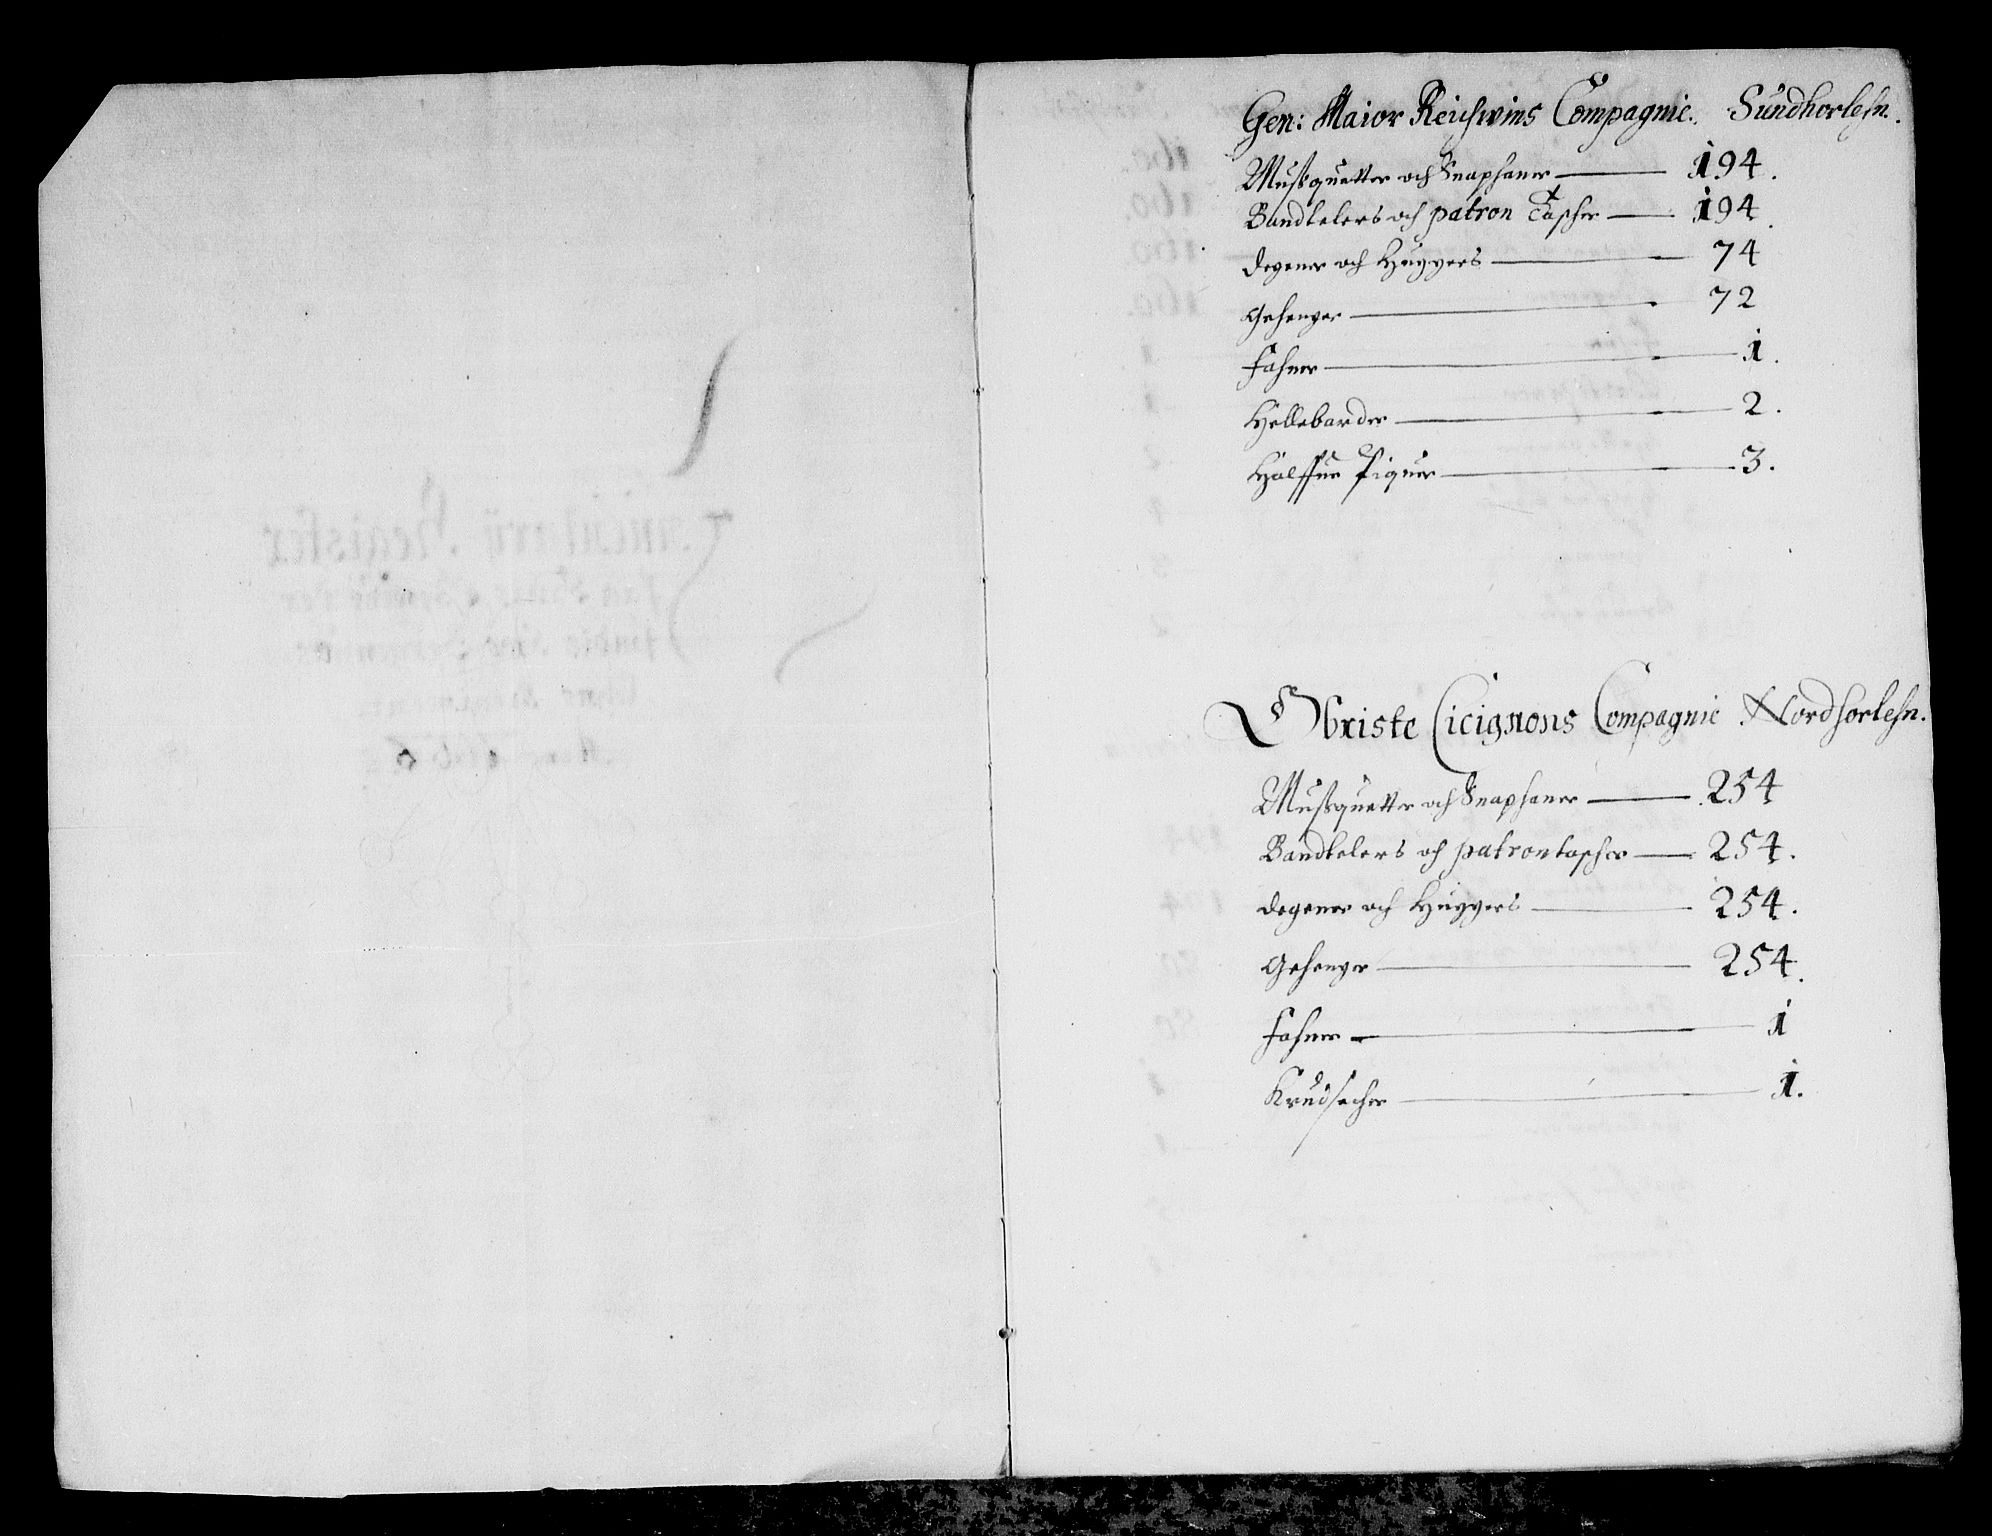 Gen: Maior Reichwins Compagnie. Sündhorlehn.
Mußquetter och Snaphaner 194.
Bandtelers och patron Tascher 194.
degener och Huggers 74
Gehenger 72
Fahner 1.
Hellebarder 2.
Halffue Piquer 3.
Obriste Cicignons Compagnie Nordhorlehn.
Mußquetter och Snaphaner 254
Bandtelers och patrontascher 254.
degener och Huggers 254.
Gehenger 254.
Fahner 1
Krudsecher 1.